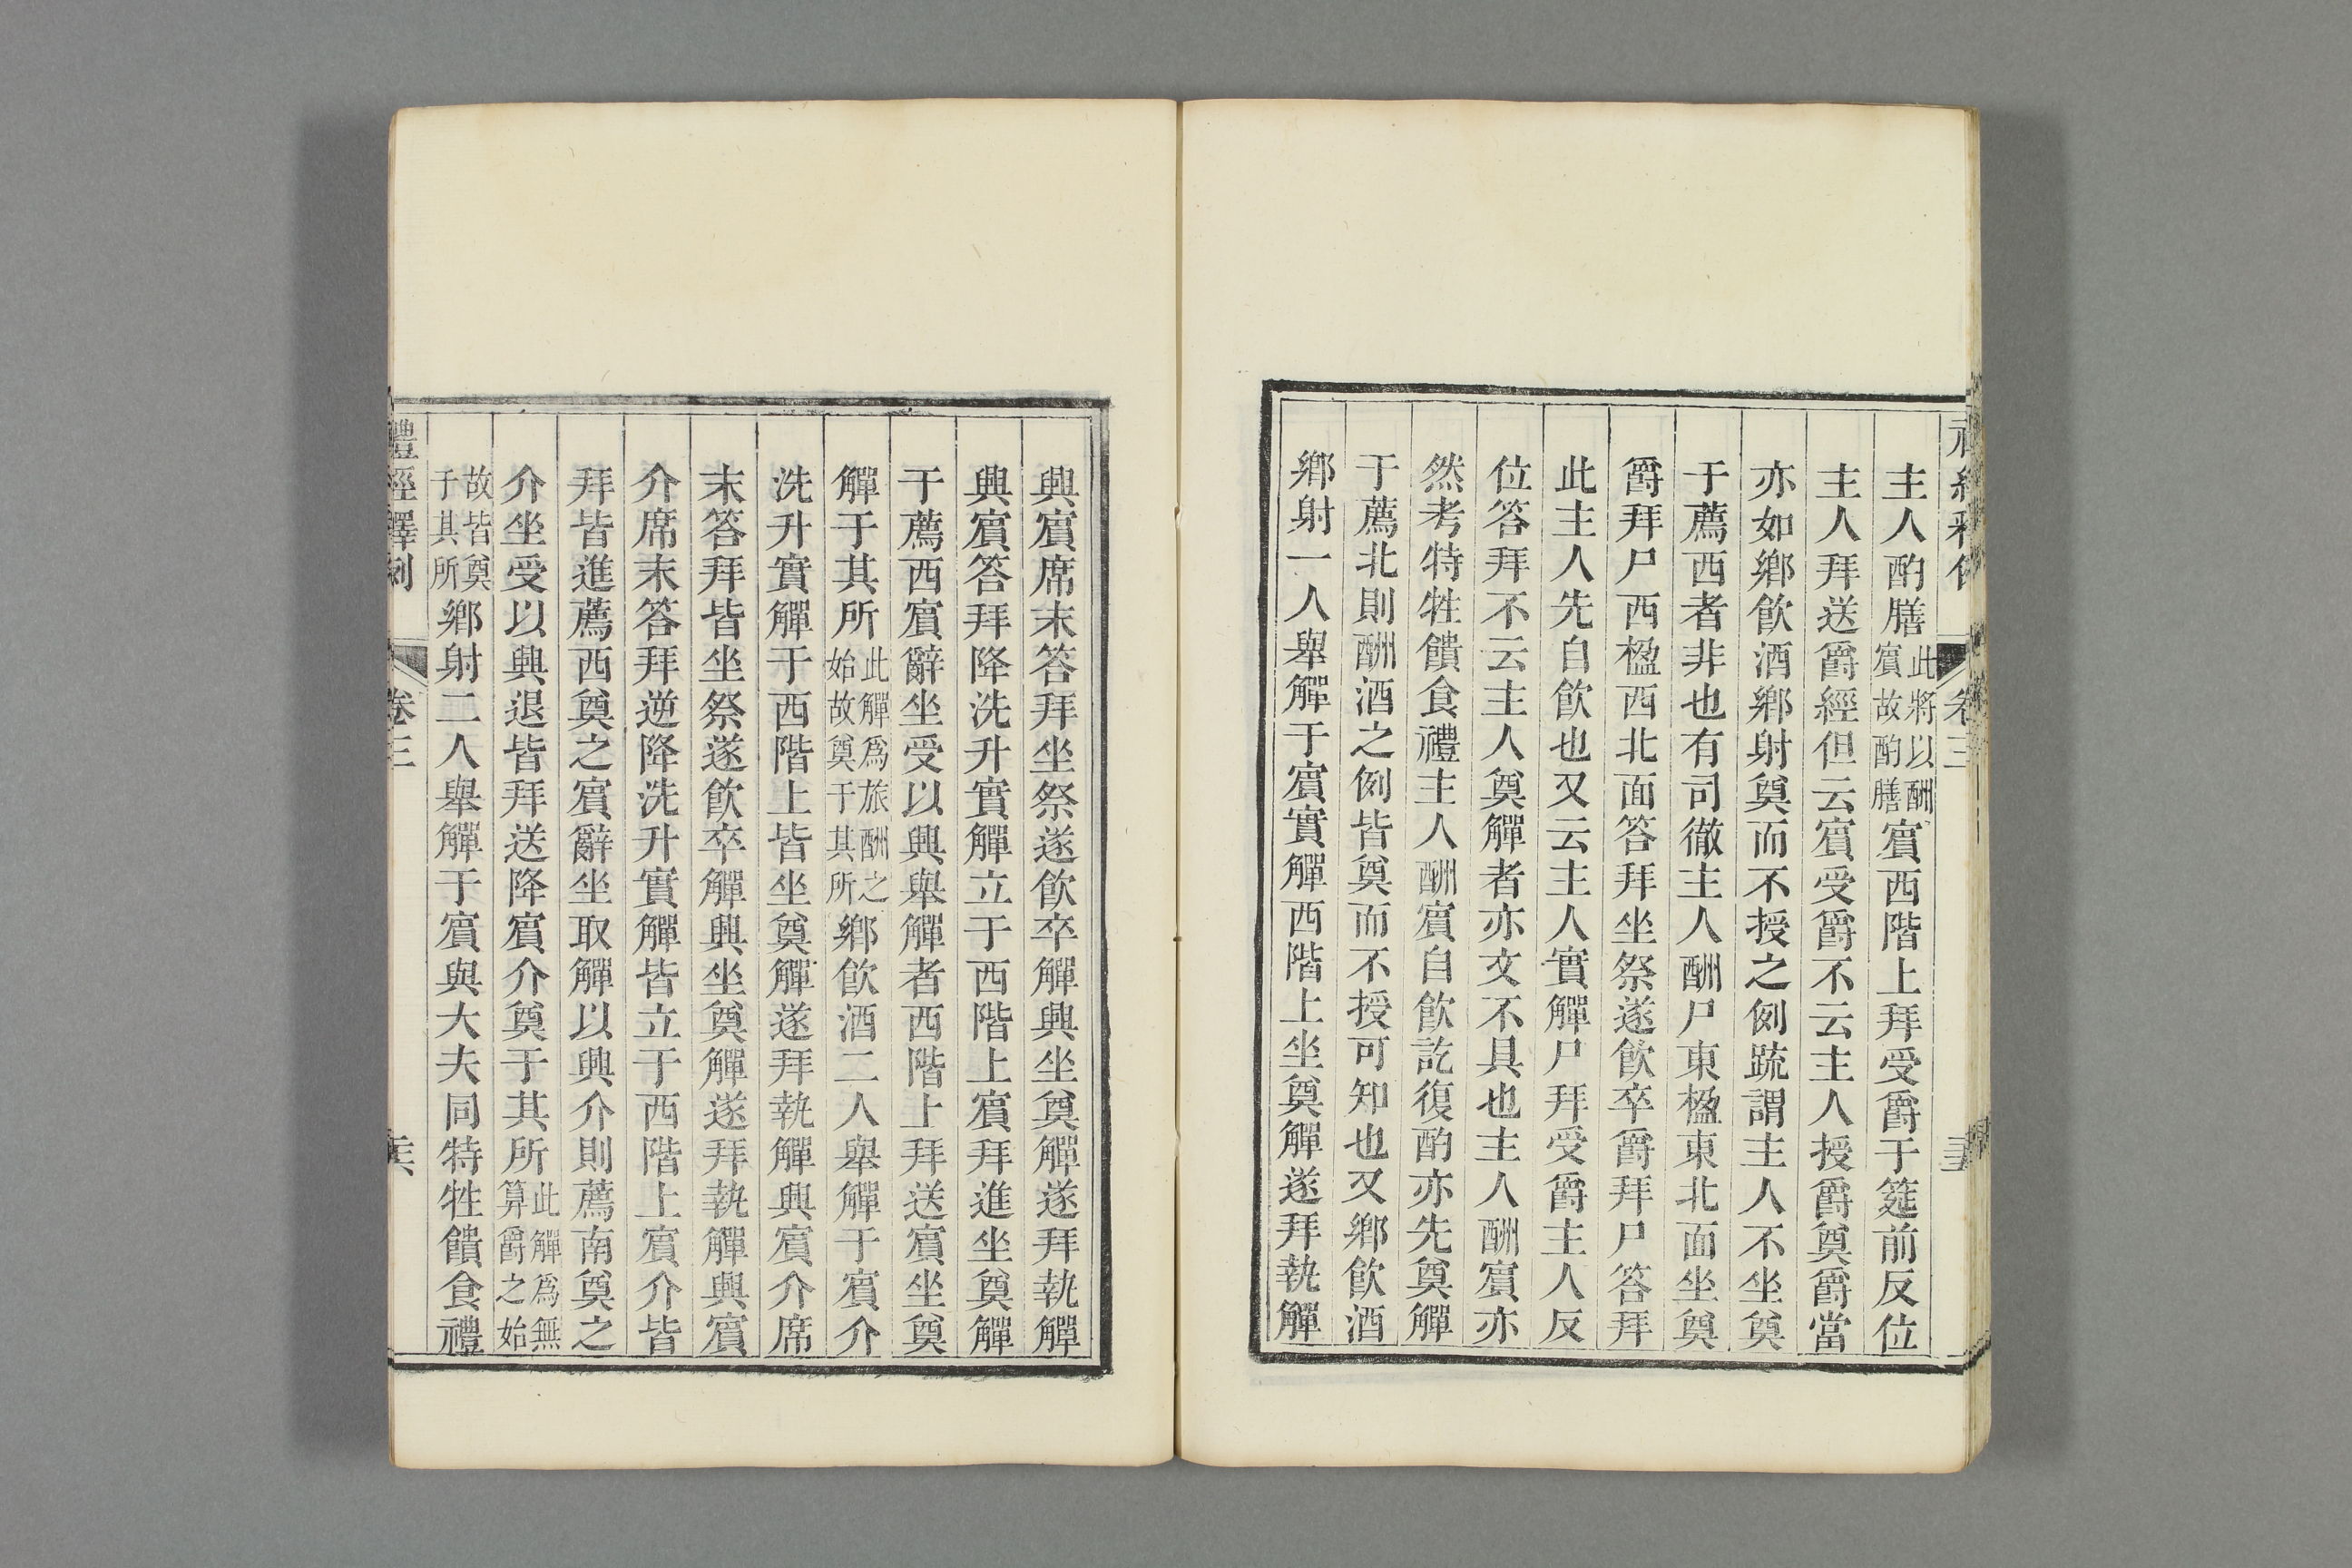 主人酌膳此將以酬賓故酌膳賓西階上拜受爵于筵前反位
主人拜送爵經但云賓受爵不云主人授爵奠爵當
亦如鄉飲酒鄉射奠而不授之例疏謂主人不坐奠
于薦西者非也有司徹主人酬尸東楹東北面坐奠
爵拜尸西楹西北面答拜坐祭遂飲卒爵拜尸答拜
此主人先自飲也又云主人實觶尸拜受爵主人反
位答拜不云主人奠觶者亦文不具也主人酬賓亦
然考特牲饋食禮主人酬賓自飲訖復酌亦先奠觶
于薦北則酬酒之例皆奠而不授可知也又鄉飲酒
鄉射一人舉觶于賓實觶西階上坐奠觶遂拜執觶
興賓席末答拜坐祭遂飲卒觶興坐奠觶遂拜執觶
興賓答拜降洗升實觶立于西階上賓拜進坐奠觶
于薦西賓辭坐受以興舉觶者西階上拜送賓坐奠
觶于其所此觶爲旅酬之始故奠于其所鄉飲酒二人舉觶于賓介
洗升實觶于西階上皆坐奠觶遂拜執觶興賓介席
末答拜皆坐祭遂飲卒觶興坐奠觶遂拜執觶興賓
介席末答拜逆降洗升實觶皆立于西階上賓介皆
拜皆進薦西奠之賓辭坐取觶以興介則薦南奠之
介坐受以興退皆拜送降賓介奠于其所此觶爲無算爵之始
故皆奠于其所鄉射二人舉觶于賓與大夫同特牲饋食禮
禮經釋例
卷三